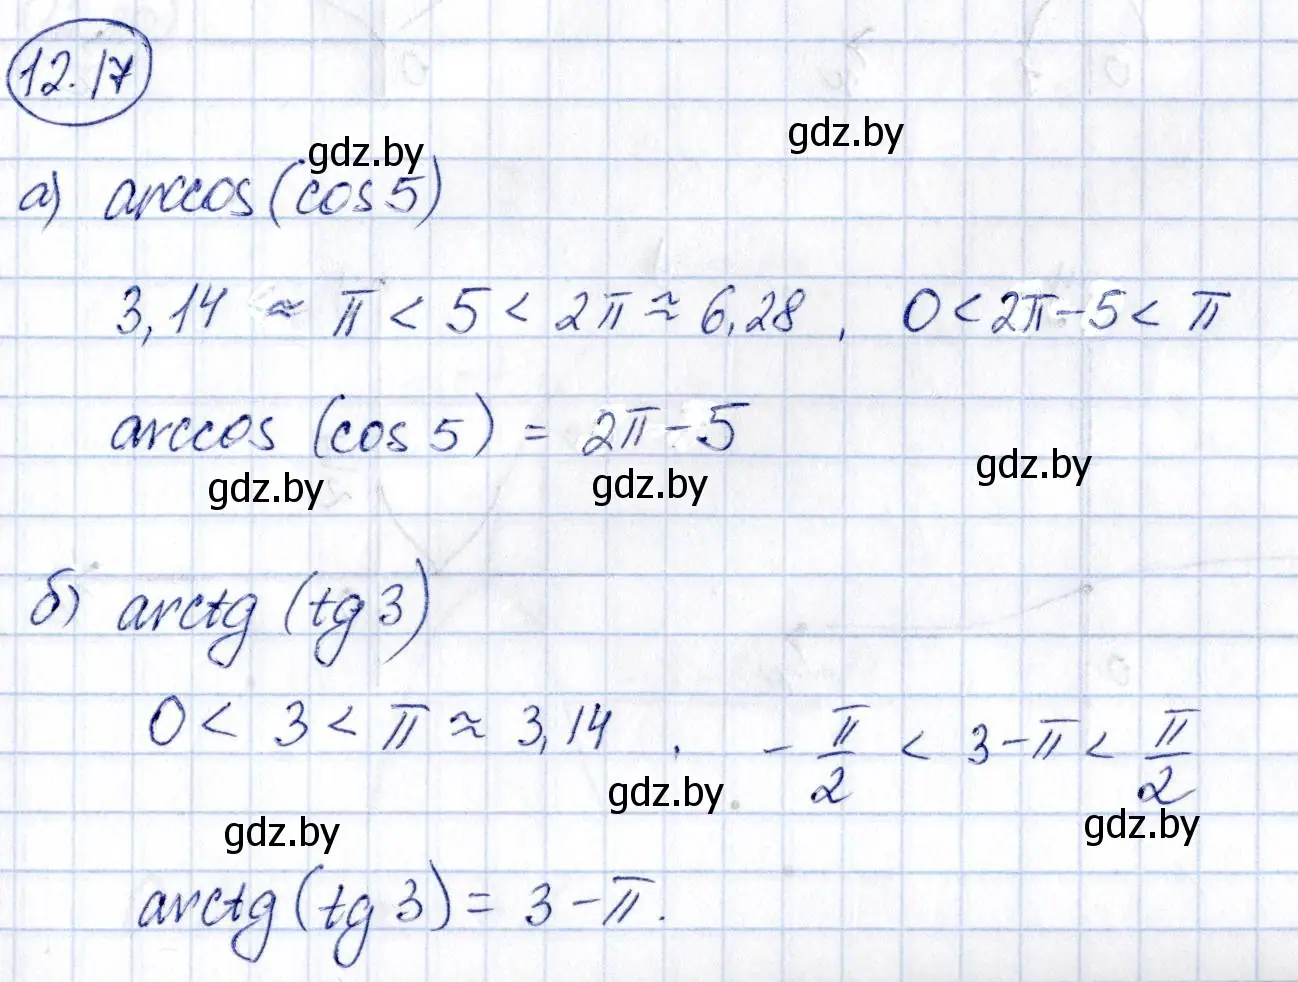 12.17
gdz.by
gdz.by
а) arccos (cos 5)
3,14 ≈ π < 5 < 2π ≈ 6,28 , 0 < 2π - 5 < π
arccos (cos 5) = 2π - 5
gdz.by
gdz.by
gdz.by
б) arctg (tg 3)
0 < 3 < π ≈ 3,14 . - π/2 < 3 - π < π/2
gdz.by
gdz.by
gdz.by
arctg (tg 3) = 3 - π.